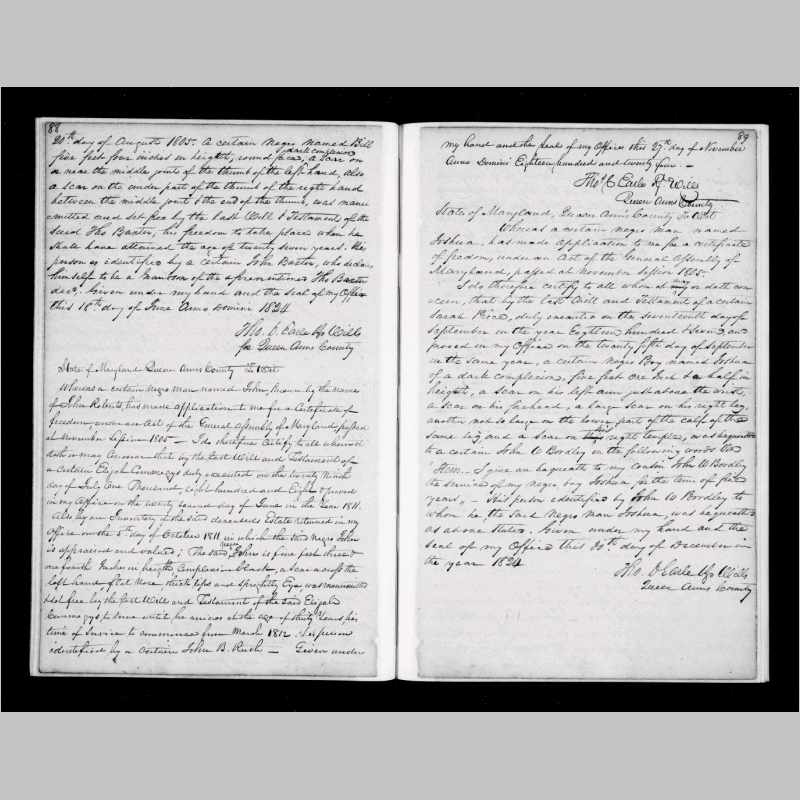 88
20th day of August 1805. A certain Negro named Bill
dark complexion
five feet four inches in height, round face, a scar on
a near the middle joint of the thumb of the left hand, also
a scar on the under part of the thumb of the right hand
between the middle joint & the end of the thumb, was manu
mitted and set free by the Last Will & Testament of the
said Tho Baxter, his freedom to take place when he
shall have attained the age of twenty seven years. His
person is identified by a certain John Baxter, who declares
himself to be a son of the aforementioned Tho Baxter
decd. Given under my hand and the seal of my Office
this 16th day of June Anno Domini 1824
Tho. C. Earle Rg Wills
for Queen Anns County
State of Maryland Queen Anns County to Wit
Whereas a certain negro man named John, known by the name
of John Roberts, has made application to me for a Certificate of
freedom, under an Act of the General Assembly of Maryland passed
at November Session 1805 — I do therefore Certify to all whom it
doth or may Concern that by the Last Will and Testament of
a Certain Elijah duly executed on the twenty Ninth
day of July One Thousand, Eight hundred and Eight & proved
in my Office on the twenty second day of June in the Year 1811.
Also by an Inventory of the said deceaseds Estate returned in my
Office on the 8th day of October 1811 in which the said Negro John
is appraised and valued; The said
negro
John is five feet three &
one fourth Inches in height, Complexion black, a scar across the
left hand, flat Nose, thick lips and sprightly Eye, was manumitted
& set free by the Last Will and Testament of the said Elijah
to serve until he arrives at the age of thirty Years, his
time of service to commence from March 1812. his person
identified by a Certain John B. Rush — Given under
89
my hand and the seal of my Office this 27th day of November
Anno Domini Eighteen hundred and twenty four. —
Tho C Earle Rg Wills
Queen Anns County
State of Maryland, Queen Ann's County to Wit
Whereas a certain negro man named
Joshua, has made application to me for a certificate
of freedom, under an Act of the General Assembly of
Maryland, passed at November Session 1805.
I do therefore certify to all whom it may or doth con
cern, that by the Last Will and Testament of a certain
Sarah Price, duly executed on the seventeenth day of
September in the year Eighteen hundred & seven, and
proved in my Office on the twenty fifth day of September
in the same year, a certain Negro Boy named Joshua
of a dark complexion, five feet one Inch & a half in
height, a scar on his left arm just above the wrist,
a scar on his forehead, a large scar on his right leg,
another not so large on the lower part of the calf of the
same leg, and a scar on right temple, was bequeathed
to a certain John W Bordley in the following words Viz
Item — I give and bequeathe to my cousin John W Bordley
the service of my negro boy Joshua, for the term of five
years, — His person identified by John W Bordley to
whom he, the said Negro man Joshua, was bequeathed
as above stated. Given under my hand and the
seal of my Office this 30th day of December in
the year 1824
Tho C Earle Rg Wills
Queen Anns County